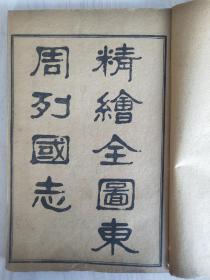 精繪全圖東
周列國志